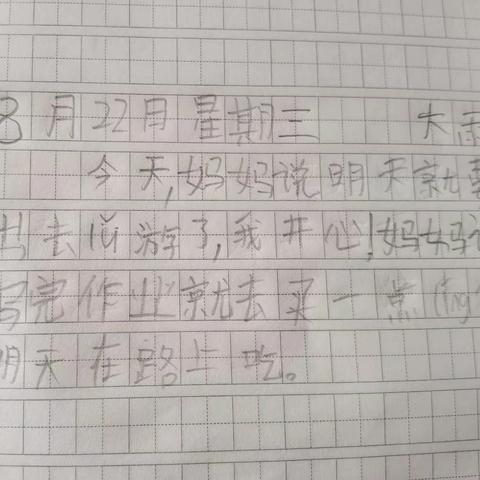 8月22月星期三 大
今天,妈妈说明天就要
出去lǚ游了,我开心!妈妈说
写完作业就去买一点líng
明天在路上吃。